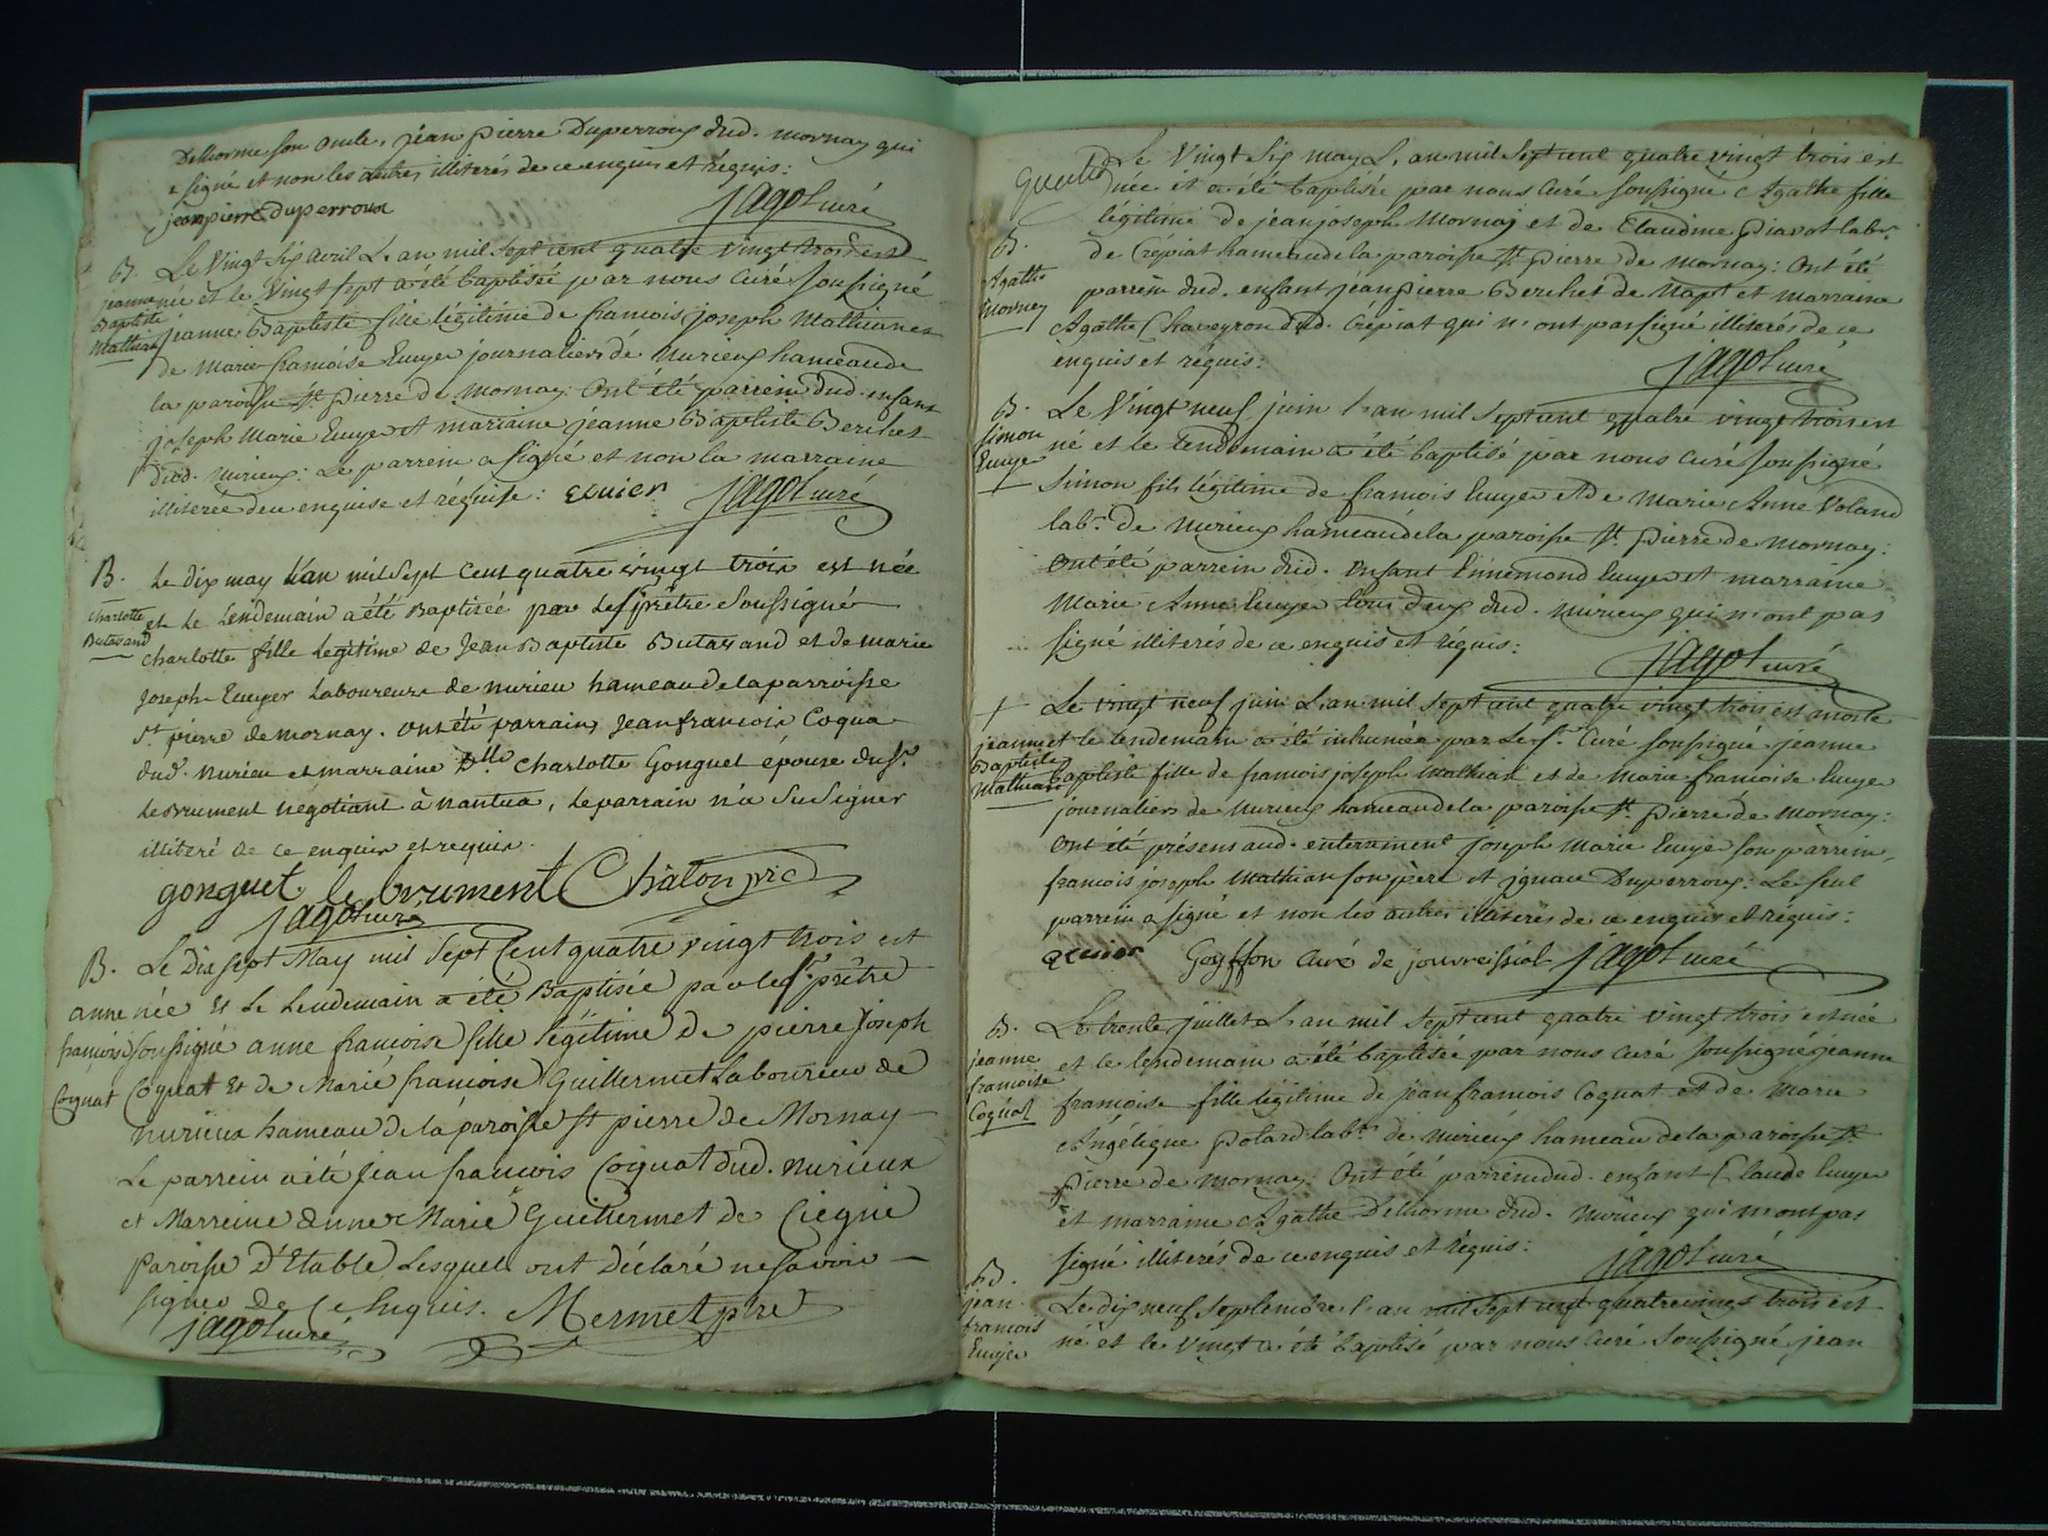 Delhorme son oncle, jean pierre Duperroux dud. mornay qui
a signé et non les autres illiterés de ce enquis et réquis:
jean pierre duperroux jagot curé
B. Le Vingt Six avril L'an mil Sept cent quatre vingt trois est
jeanne née et le Vingt sept a été baptisée par nous Curé Soussigné
Baptiste
Mathian jeanne Baptiste fille légitime de francois joseph Mathian et
de Marie francoise Ecuyer journaliers de Nurieux hameau de
la paroisse St. pierre de Mornay: Ont été parrein dud. enfant
joseph Marie Ecuyer et marraine jeanne Baptiste Berchet
dud. Nurieux: Le parrein a signé et non la marraine
illiterée de ce enquise et réquise: ecuier jagot curé
B. Le dix may L'an mil Sept Cent quatre vingt trois est née
Charlotte et Le Lendemain a été Baptisée par Le Sr prêtre Soussigné
Butavand
Charlotte fille Legitime de Jean Baptiste Butavand et de marie
Joseph Ecuyer Laboureurs de nurieu hameau de la parroisse
St. pierre de mornay. ont été parrain Jean francois Coqua
dud. nurieu et marraine Dlle Charlotte Gonguet épouse du Sr.
Le brument négotiant à nantua, Le parrain n'a Su Signer
illiteré de ce enquis et requis.
gonguet le brument Châton pre
jagot curé
B. Le Dix Sept May mil Sept Cent quatre vingt trois est
anne née Et Le Lendemain a été Baptisée par le Sr. prêtre
francoise soussigné anne francoise fille légitime de pierre Joseph
Coquat Coquat Et de Marie francoise Guillermet Laboureurs de
nurieux hameau de la paroisse St pierre de Mornay
Le parrein a été Jean francois Coquat dud. nurieux
et Marreine Anne Marie Guillermet de Ciegne
Paroisse D'Etable Lesquels ont Déclaré ne savoir
signer De Ce Enquis. Mermet ptre
jagot curé
Le Vingt Six may L'an mil Sept cent quatre vingt trois est
née et a été baptisée par nous Curé Soussigné Agathe fille
légitime de jean joseph Mornay et de Claudine Piavot labrs.
B. de Crépiat hameau de la paroisse St. pierre de Mornay: Ont été
Agathe parrein dud. enfant jean pierre Berchet de Napt et Marraine
Mornay
Agathe Chaveyron dud. Crépiat qui n'ont pas signé illiterés de ce
enquis et réquis:
jagot curé
B. Le Vingt neuf juin L'an mil Sept cent quatre vingt trois est
Simon né et le lendemain a été baptisé par nous Curé Soussigné
Ecuyer
Simon fils légitime de francois Ecuyer et de Marie Anne Voland
labrs. de Nurieux hameau de la paroisse St. pierre de Mornay:
Ont été parrein dud. Enfant Ennemond Ecuyer et marraine
Marie Anne Ecuyer tous deux dud. Nurieux qui n'ont pas
signé illiterés de ce enquis et réquis:
jagot curé
† Le vingt neuf juin L'an mil Sept cent quatre vingt trois est morte
jeanne et le lendemain a été inhumée par Le Sr. Curé soussigné jeanne
Baptiste baptiste fille de francois joseph Mathian et de Marie francoise Ecuyer
Mathian
journaliers de Nurieux hameau de la paroisse St. Pierre de Mornay:
Ont été présens aud. enterrement joseph Marie Ecuyer son parrein,
francois joseph Mathian son père et ignace Duperroux: Le seul
parrein a signé et non les autres illiterés de ce enquis et réquis:
ecuier Goyffon Curé de jouvreissiat jagot curé
B. Le trente juillet L'an mil Sept cent quatre vingt trois est née
jeanne et le lendemain a été baptisée par nous Curé Soussigné jeanne
francoise
Coquat francoise fille légitime de jean francois Coquat et de Marie
Angélique Potard labrs. de Nurieux hameau de la paroisse St.
Pierre de Mornay: Ont été parrein dud. enfant Claude Ecuyer
et marraine Agathe Delhorme dud. Nurieux qui n'ont pas
signé illiterés de ce enquis et réquis:
jagot curé
B.
jean Le dix neuf Septembre L'an mil Sept cent quatre vingt trois est
francois né et le Vingt a été baptisé par nous Curé Soussigné jean
Ecuyer